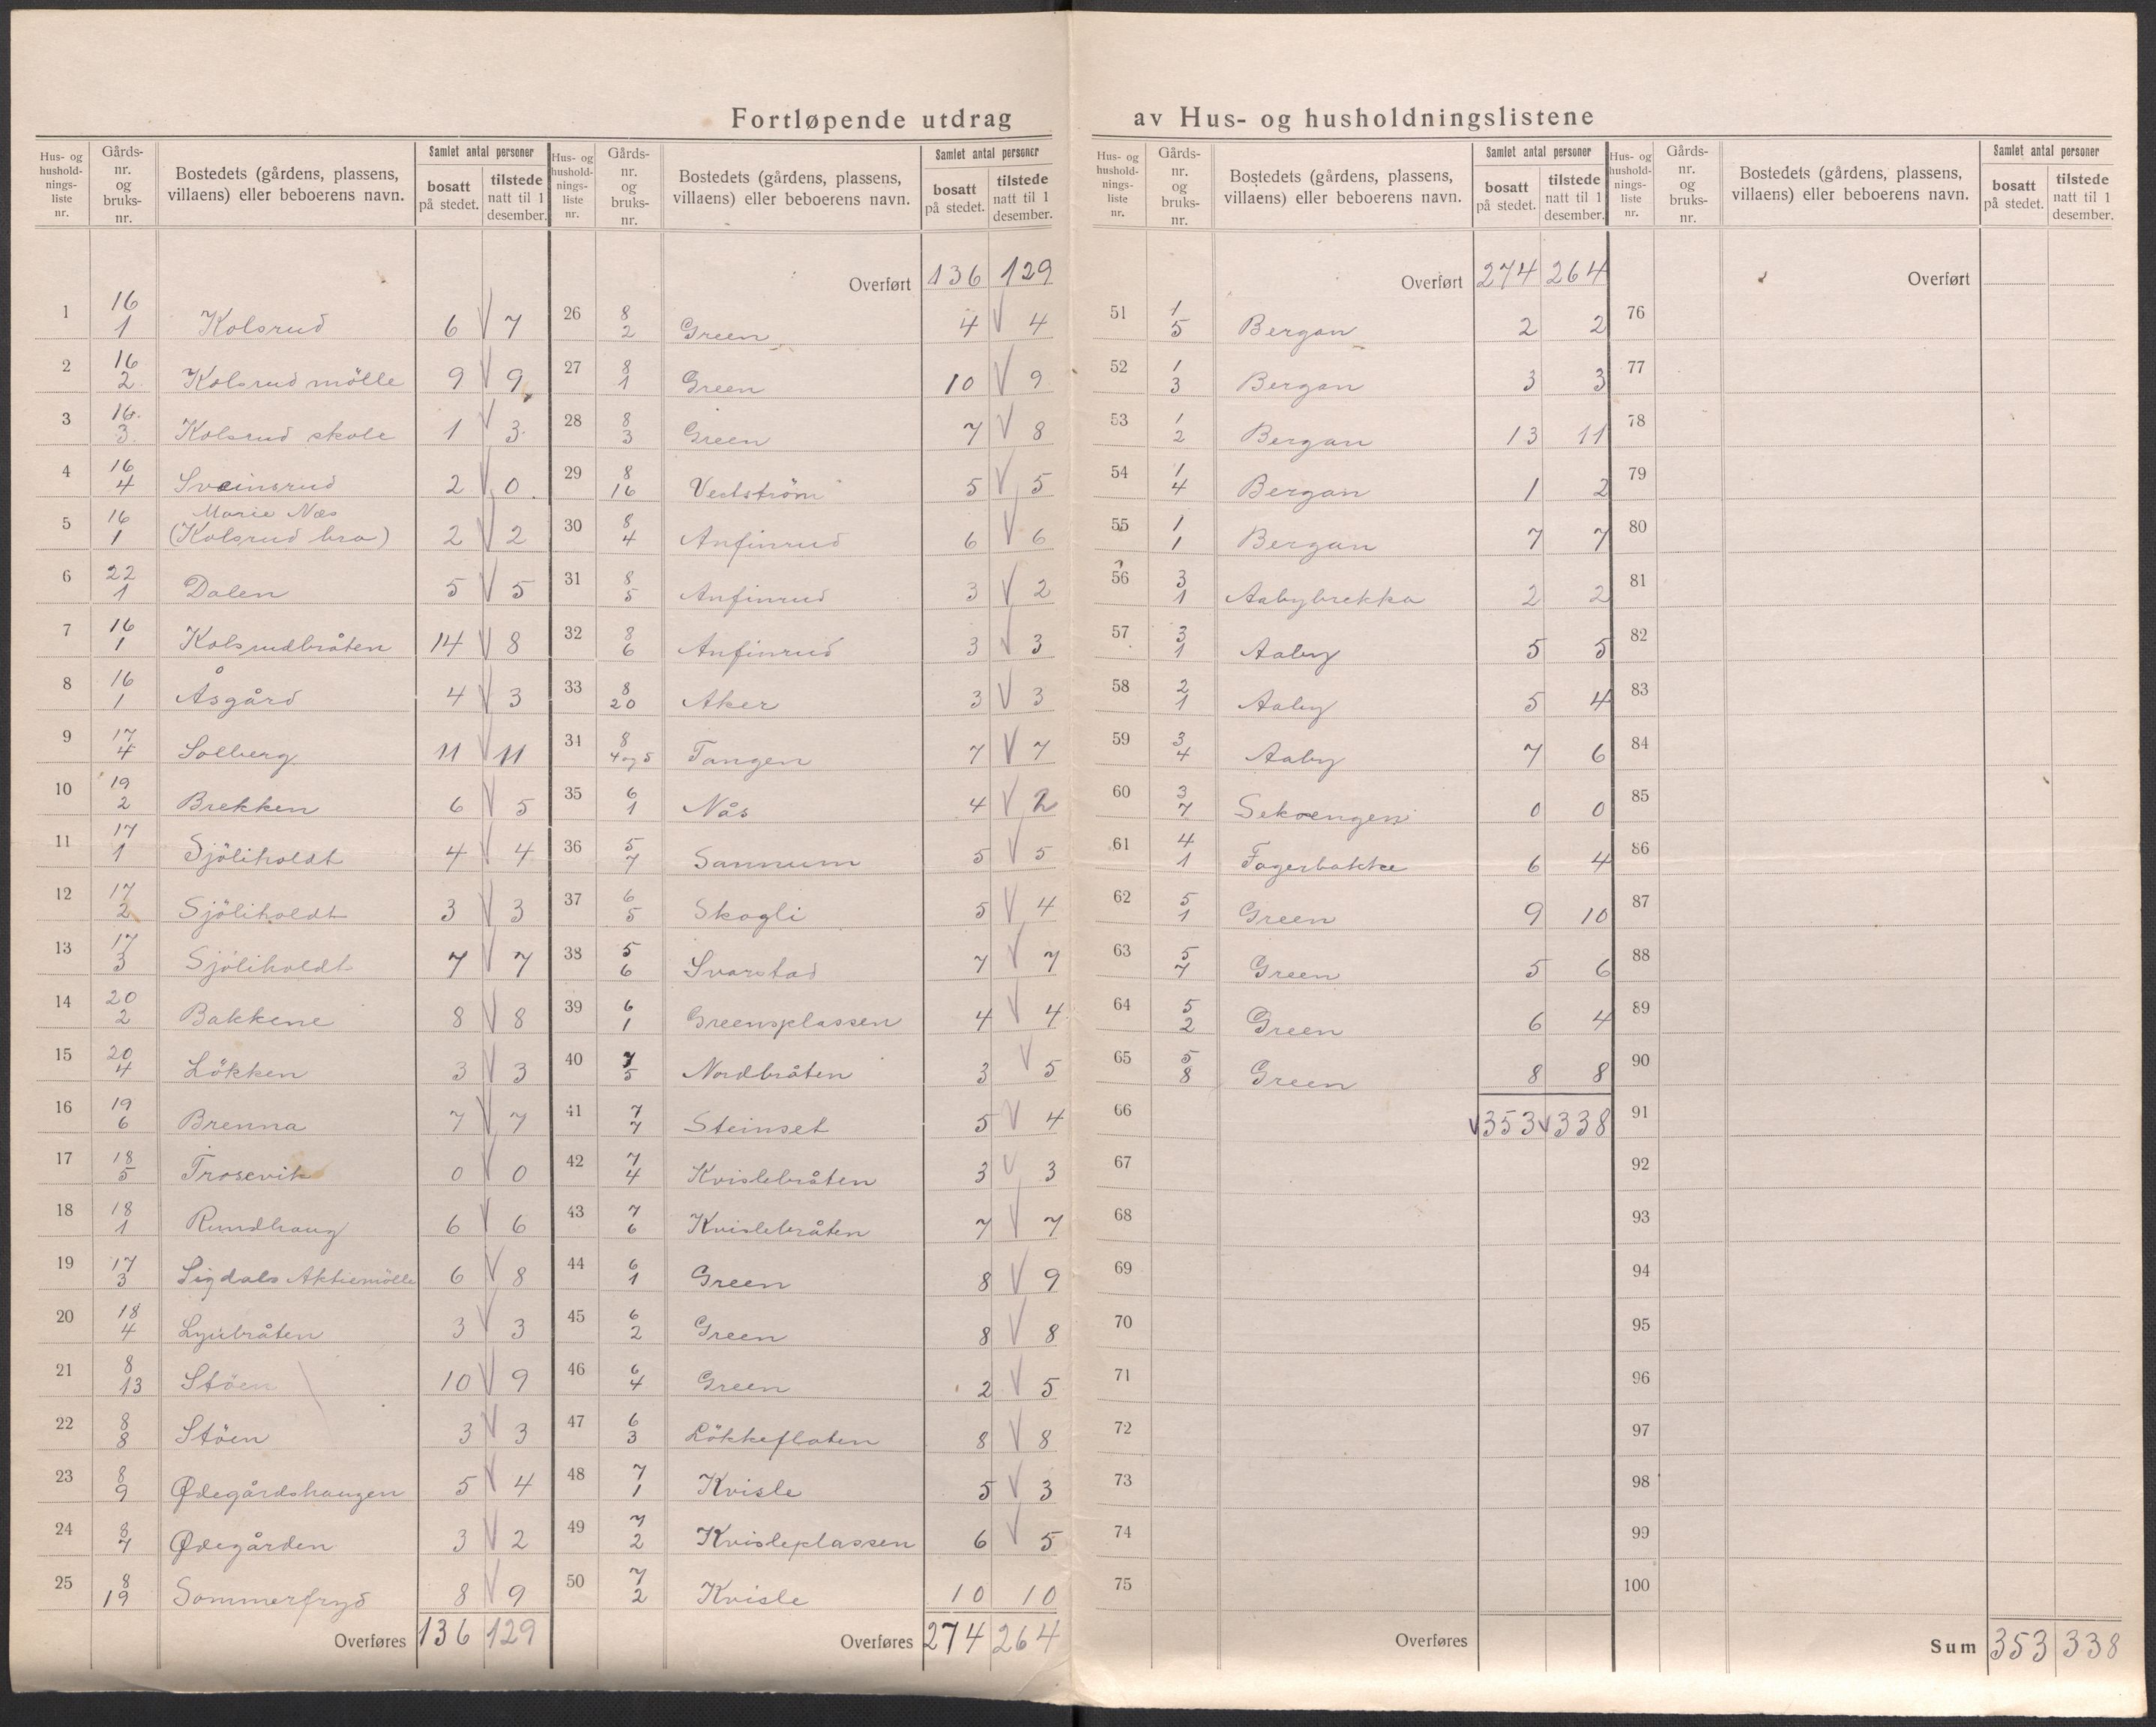 Fortløpende utdrag av Hus- og husholdningslistene
Hus- og husholdnings-liste nr. | Gårds-nr. og bruks-nr. | Bostedets (gårdens, plassens, villaens) eller beboerens navn. | Samlet antal personer | bosatt på stedet. | tilstede natt til 1 desember.
1 16/1 Kolsrud 6 V 7
2 16/2 Kolsrud mölle 9 V 9
3 16/3 Kolsrud skole 1 V 3
4 16/4 Sveinsrud 2 V 0
5 16/1 Marie Næs (Kolsrud bro) 2 V 2
6 22/1 Dalen 5 V 5
7 16/1 Kolsrudbråten 14 V 8
8 16/1 Åsgård 4 V 3
9 17/4 Solberg 11 V 11
10 19/2 Brekken 6 V 5
11 17/1 Sjöliholdt 4 V 4
12 17/2 Sjöliholdt 3 V 3
13 17/3 Sjöliholdt 7 V 7
14 20/2 Bakkene 8 V 8
15 20/4 Lökken 3 V 3
16 19/6 Brenna 7 V 7
17 18/5 Trosevik 0 V 0
18 18/1 Rundhaug 6 V 6
19 17/3 Sigdals Aktiemölle 6 V 8
20 18/4 3 V 3
21 8/13 Stöen 10 V 9
22 8/8 Stöen 3 V 3
23 8/9 Ødegårdshaugen 5 V 4
24 8/7 Ødegården 3 V 2
25 8/19 Sommerfryd 8 V 9
Overføres 136 129
Hus- og husholdnings-liste nr. | Gårds-nr. og bruks-nr. | Bostedets (gårdens, plassens, villaens) eller beboerens navn. | Samlet antal personer | bosatt på stedet. | tilstede natt til 1 desember.
Overført 136 129
26 8/2 Green 4 V 4
27 8/1 Green 10 V 9
28 8/3 Green 7 V 8
29 8/16 Vedström 5 V 5
30 8/4 Anfinrud 6 V 6
31 8/5 Anfinrud 3 V 2
32 8/6 Anfinrud 3 V 3
33 8/20 Aker 3 V 3
34 8/4 og 5 Tangen 7 V 7
35 6/1 Nås 4 V 2
36 5/7 Sannum 5 V 5
37 6/5 Skogli 5 V 4
38 5/6 Svarstad 7 V 7
39 6/1 Greensplassen 4 V 4
40 7/5 Nordbråten 3 V 5
41 7/7 Steinset 5 V 4
42 7/4 Kvislebråten 3 V 3
43 7/6 Kvislebråten 7 V 7
44 6/1 Green 8 V 9
45 6/2 Green 8 V 8
46 6/4 Green 2 V 5
47 6/3 Lökkeflaten 8 V 8
48 7/1 Kvisle 5 V 3
49 7/2 Kvisleplassen 6 V 5
50 7/2 Kvisle 10 10
Overføres 274 264
Hus- og husholdnings-liste nr. | Gårds-nr. og bruks-nr. | Bostedets (gårdens, plassens, villaens) eller beboerens navn. | Samlet antal personer | bosatt på stedet. | tilstede natt til 1 desember.
Overført 274 264
51 1/5 Bergan 2 2
52 1/3 Bergan 3 3
53 1/2 Bergan 13 11
54 1/4 Bergan 1 2
55 1/1 Bergan 7 7
56 3/1 Aabybrekka 2 2
57 3/1 Aaby 5 5
58 2/1 Aaby 5 4
59 3/4 Aaby 7 6
60 3/7 0 0
61 4/1 Fagerbakke 6 4
62 5/1 Green 9 10
63 5/7 Green 5 6
64 5/2 Green 6 4
65 5/8 Green 8 8
66 V353 V338
67
68
69
70
71
72
73
74
75
Overføres
Hus- og husholdnings-liste nr. | Gårds-nr. og bruks-nr. | Bostedets (gårdens, plassens, villaens) eller beboerens navn. | Samlet antal personer | bosatt på stedet. | tilstede natt til 1 desember.
Overført
76
77
78
79
80
81
82
83
84
85
86
87
88
89
90
91
92
93
94
95
96
97
98
99
100
Sum 353 338